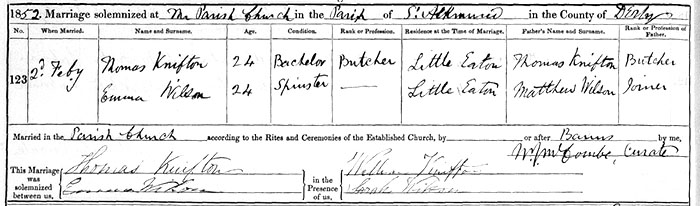 1852. Marriage solemnized at the Parish Church in the Parish of St Alkmund in the County of Derby
No. When Married. Name and Surname. Age. Condition. Rank or Profession. Residence at the Time of Marriage. Father's Name and Surname. Rank or Profession of Father.
123 2d Feby Thomas Knifton 24 Bachelor Butcher Little Eaton Thomas Knifton Butcher
Emma Wilson 24 Spinster — Little Eaton Matthew Wilson Joiner
Married in the Parish Church according to the Rites and Ceremonies of the Established Church, by or after Banns by me,
Wm McCombe, Curate
This Marriage was solemnized between us, Thomas Knifton in the Presence of us, William Knifton
Emma Wilson Sarah Wilson